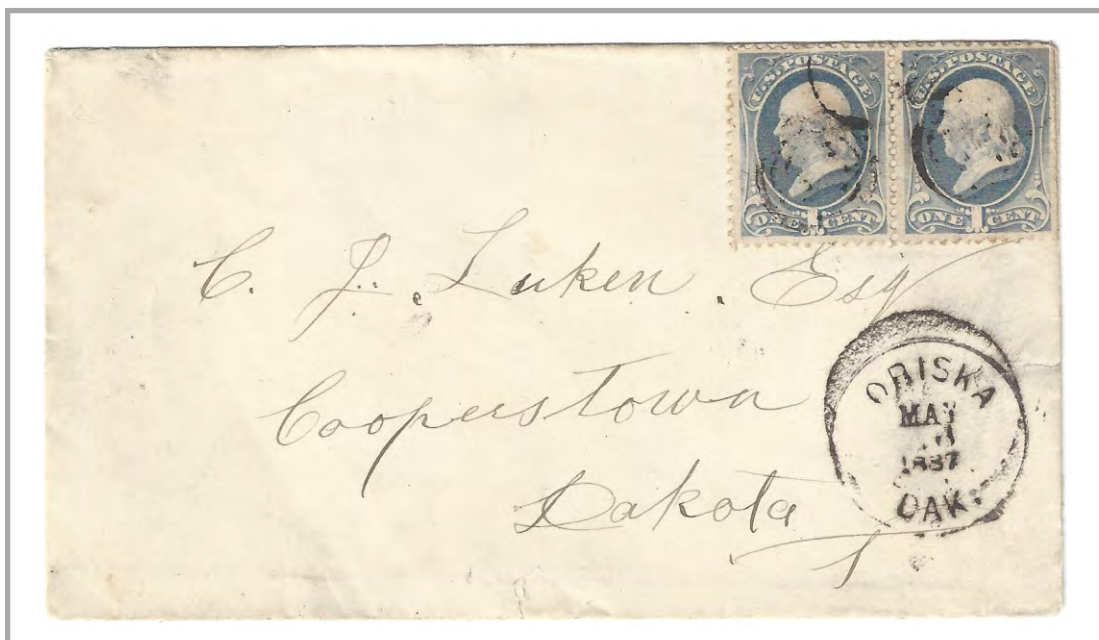 U.S. POSTAGE
ONE 1 CENT
U.S. POSTAGE
ONE 1 CENT
C. J. Luken. Esq
Cooperstown
Dakota
ORISKA
MAY
1887
DAK.